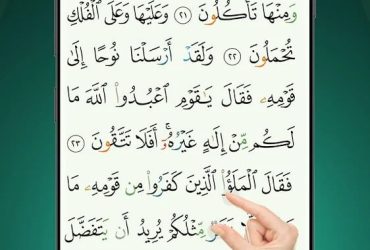 وَمِنْهَا تَأْكُلُونَ ٢١ وَعَلَيْهَا وَعَلَى ٱلْفُلْكِ
تُحْمَلُونَ ٢٢ وَلَقَدْ أَرْسَلْنَا نُوحًا إِلَىٰ
قَوْمِهِۦ فَقَالَ يَٰقَوْمِ ٱعْبُدُوا۟ ٱللَّهَ مَا
لَكُم مِّنْ إِلَٰهٍ غَيْرُهُۥٓ ۖ أَفَلَا تَتَّقُونَ ٢٣
فَقَالَ ٱلْمَلَؤُا۟ ٱلَّذِينَ كَفَرُوا۟ مِن قَوْمِهِۦ مَا
مِّثْلُكُمْ يُرِيدُ أَن يَتَفَضَّلَ